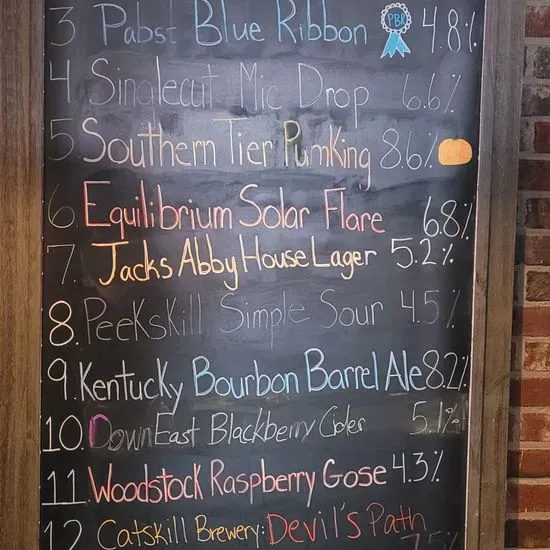 3 Pabst Blue Ribbon PBR 4.8%
4 Singlecut Mic Drop 6.6%
5 Southern Tier PumKing 8.6%
6. Equilibrium Solar Flare 6.8%
7. Jacks Abby House Lager 5.2%
8. Peekskill Simple Sour 4.5%
9. Kentucky Bourbon Barrel Ale 8.2%
10. DownEast Blackberry Cider 5.1%
11 Woodstock Raspberry Gose 4.3%
12 Catskill Brewery: Devil's Path 7.5%